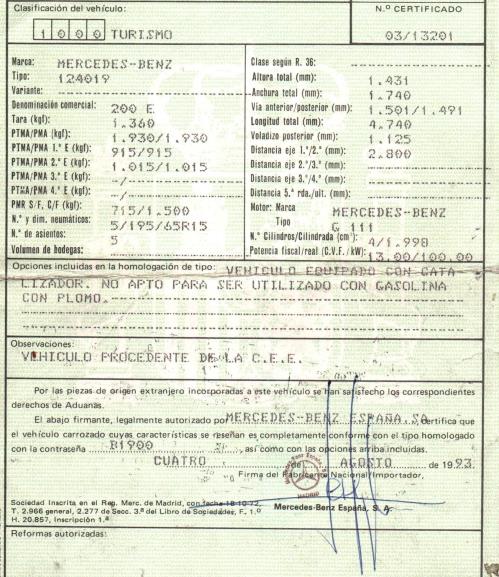 Clasificación del vehículo:
N.º CERTIFICADO
1 0 0 0 TURISMO
03/13201
Marca: MERCEDES-BENZ
Tipo: 124019
Variante:
Denominación comercial: 200 E
Tara (kgf): 1.360
PTMA/PMA (kgf): 1.930/1.930
PTMA/PMA 1.º E (kgf): 915/915
PTMA/PMA 2.º E (kgf): 1.015/1.015
PTMA/PMA 3.º E (kgf): -/-
PTMA/PMA 4.º E (kgf): -/-
PMR S/F, C/F (kgf): 715/1.500
N.º y dim. neumáticos: 5/195/65R15
N.º de asientos: 5
Volumen de bodegas:
Clase según R. 36:
Altura total (mm): 1.431
Anchura total (mm): 1.740
Via anterior/posterior (mm): 1.501/1.491
Longitud total (mm): 4.740
Voladizo posterior (mm): 1.125
Distancia eje 1.º/2.º (mm): 2.800
Distancia eje 2.º/3.º (mm):
Distancia eje 3.º/4.º (mm):
Distancia 5.ª rda./ult. (mm):
Motor: Marca MERCEDES-BENZ
Tipo G 111
N.º Cilindros/Cilindrada (cm³) 4/1.998
Potencia fiscal/real (C.V.F. / kW): 13.00/100.00
Opciones incluidas en la homologación de tipo: VEHICULO EQUIPADO CON CATA-
LIZADOR. NO APTO PARA SER UTILIZADO CON GASOLINA
CON PLOMO.
Observaciones:
VEHICULO PROCEDENTE DE LA C.E.E.
Por las piezas de origen extranjero incorporadas a este vehículo se han satisfecho los correspondientes
derechos de Aduanas.
El abajo firmante, legalmente autorizado por MERCEDES-BENZ ESPAÑA, SA certifica que
el vehículo carrozado cuyas características se reseñan es completamente conforme con el tipo homologado
con la contraseña B1900, así como con las opciones arriba incluidas.
CUATRO de AGOSTO de 1993
Firma del Fabricante Nacional/Importador,
MADRID
Sociedad Inscrita en el Reg. Merc. de Madrid, con fecha 18-10-72
T. 2.966 general, 2.277 de Secc. 3.ª del Libro de Sociedades, F. 1.º
H. 20.857, Inscripción 1.ª
Mercedes-Benz España, S. A.
Reformas autorizadas: